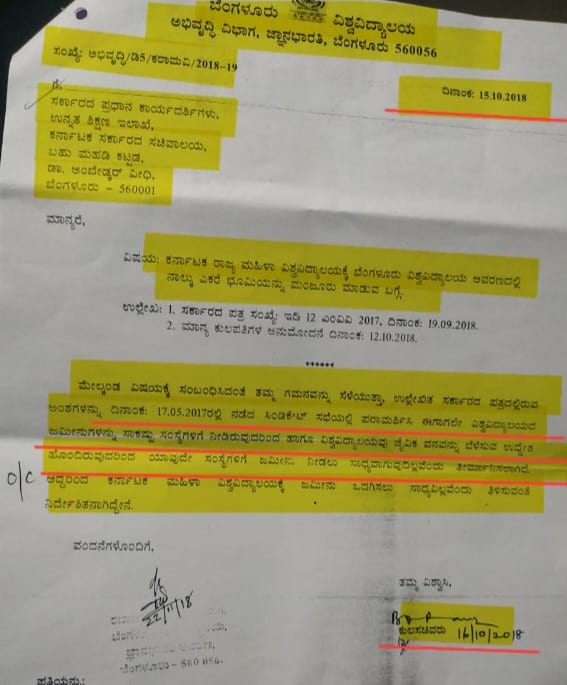 ಬೆಂಗಳೂರು ವಿಶ್ವವಿದ್ಯಾಲಯ
ಅಭಿವೃದ್ಧಿ ವಿಭಾಗ, ಜ್ಞಾನಭಾರತಿ, ಬೆಂಗಳೂರು 560056
ಸಂಖ್ಯೆ: ಅಭಿವೃದ್ಧಿ/ಡಿ5/ಕರಾಮವಿ/2018-19
ದಿನಾಂಕ: 15.10.2018
ಗೆ,
ಸರ್ಕಾರದ ಪ್ರಧಾನ ಕಾರ್ಯದರ್ಶಿಗಳು,
ಉನ್ನತ ಶಿಕ್ಷಣ ಇಲಾಖೆ,
ಕರ್ನಾಟಕ ಸರ್ಕಾರದ ಸಚಿವಾಲಯ,
ಬಹು ಮಹಡಿ ಕಟ್ಟಡ,
ಡಾ. ಅಂಬೇಡ್ಕರ್ ವೀಧಿ,
ಬೆಂಗಳೂರು - 560001
ಮಾನ್ಯರೆ,
ವಿಷಯ: ಕರ್ನಾಟಕ ರಾಜ್ಯ ಮಹಿಳಾ ವಿಶ್ವವಿದ್ಯಾಲಯಕ್ಕೆ ಬೆಂಗಳೂರು ವಿಶ್ವವಿದ್ಯಾಲಯ ಆವರಣದಲ್ಲಿ
ನಾಲ್ಕು ಎಕರೆ ಭೂಮಿಯನ್ನು ಮಂಜೂರು ಮಾಡುವ ಬಗ್ಗೆ.
ಉಲ್ಲೇಖ: 1. ಸರ್ಕಾರದ ಪತ್ರ ಸಂಖ್ಯೆ: ಇಡಿ 12 ಎಂವಿವಿ 2017, ದಿನಾಂಕ: 19.09.2018.
2. ಮಾನ್ಯ ಕುಲಪತಿಗಳ ಅನುಮೋದನೆ ದಿನಾಂಕ: 12.10.2018.
******
ಮೇಲ್ಕಂಡ ವಿಷಯಕ್ಕೆ ಸಂಬಂಧಿಸಿದಂತೆ ತಮ್ಮ ಗಮನವನ್ನು ಸೆಳೆಯುತ್ತಾ, ಉಲ್ಲೇಖಿತ ಸರ್ಕಾರದ ಪತ್ರದಲ್ಲಿರುವ
ಅಂಶಗಳನ್ನು ದಿನಾಂಕ: 17.05.2017ರಲ್ಲಿ ನಡೆದ ಸಿಂಡಿಕೇಟ್ ಸಭೆಯಲ್ಲಿ ಪರಾಮರ್ಶಿಸಿ ಈಗಾಗಲೇ ವಿಶ್ವವಿದ್ಯಾಲಯವ
ಜಮೀನುಗಳನ್ನು ಸಾಕಷ್ಟು ಸಂಸ್ಥೆಗಳಿಗೆ ನೀಡಿರುವುದರಿಂದ ಹಾಗೂ ವಿಶ್ವವಿದ್ಯಾಲಯವು ಜೈವಿಕ ವನವನ್ನು ಬೆಳೆಸುವ ಉದ್ದೇಶ
ಹೊಂದಿರುವುದರಿಂದ ಯಾವುದೇ ಸಂಸ್ಥೆಗಳಿಗೆ ಜಮೀನು ನೀಡಲು ಸಾಧ್ಯವಾಗುವುದಿಲ್ಲವೆಂದು ತೀರ್ಮಾನಿಸಲಾಗಿದೆ.
O/C
ಆದ್ದರಿಂದ ಕರ್ನಾಟಕ ಮಹಿಳಾ ವಿಶ್ವವಿದ್ಯಾಲಯಕ್ಕೆ ಜಮೀನು ಒದಗಿಸಲು ಸಾಧ್ಯವಿಲ್ಲವೆಂದು ತಿಳಿಸುವಂತೆ
ನಿರ್ದೇಶಿತನಾಗಿದ್ದೇನೆ.
ವಂದನೆಗಳೊಂದಿಗೆ,
ತಮ್ಮ ವಿಶ್ವಾಸಿ,
22/11/18
ಕುಲಸಚಿವರು 16/10/2018
ಬೆಂಗಳೂರು
ಜ್ಞಾನಭಾರತಿ
ಬೆಂಗಳೂರು-560 056.
ಪ್ರತಿಯನ್ನು: